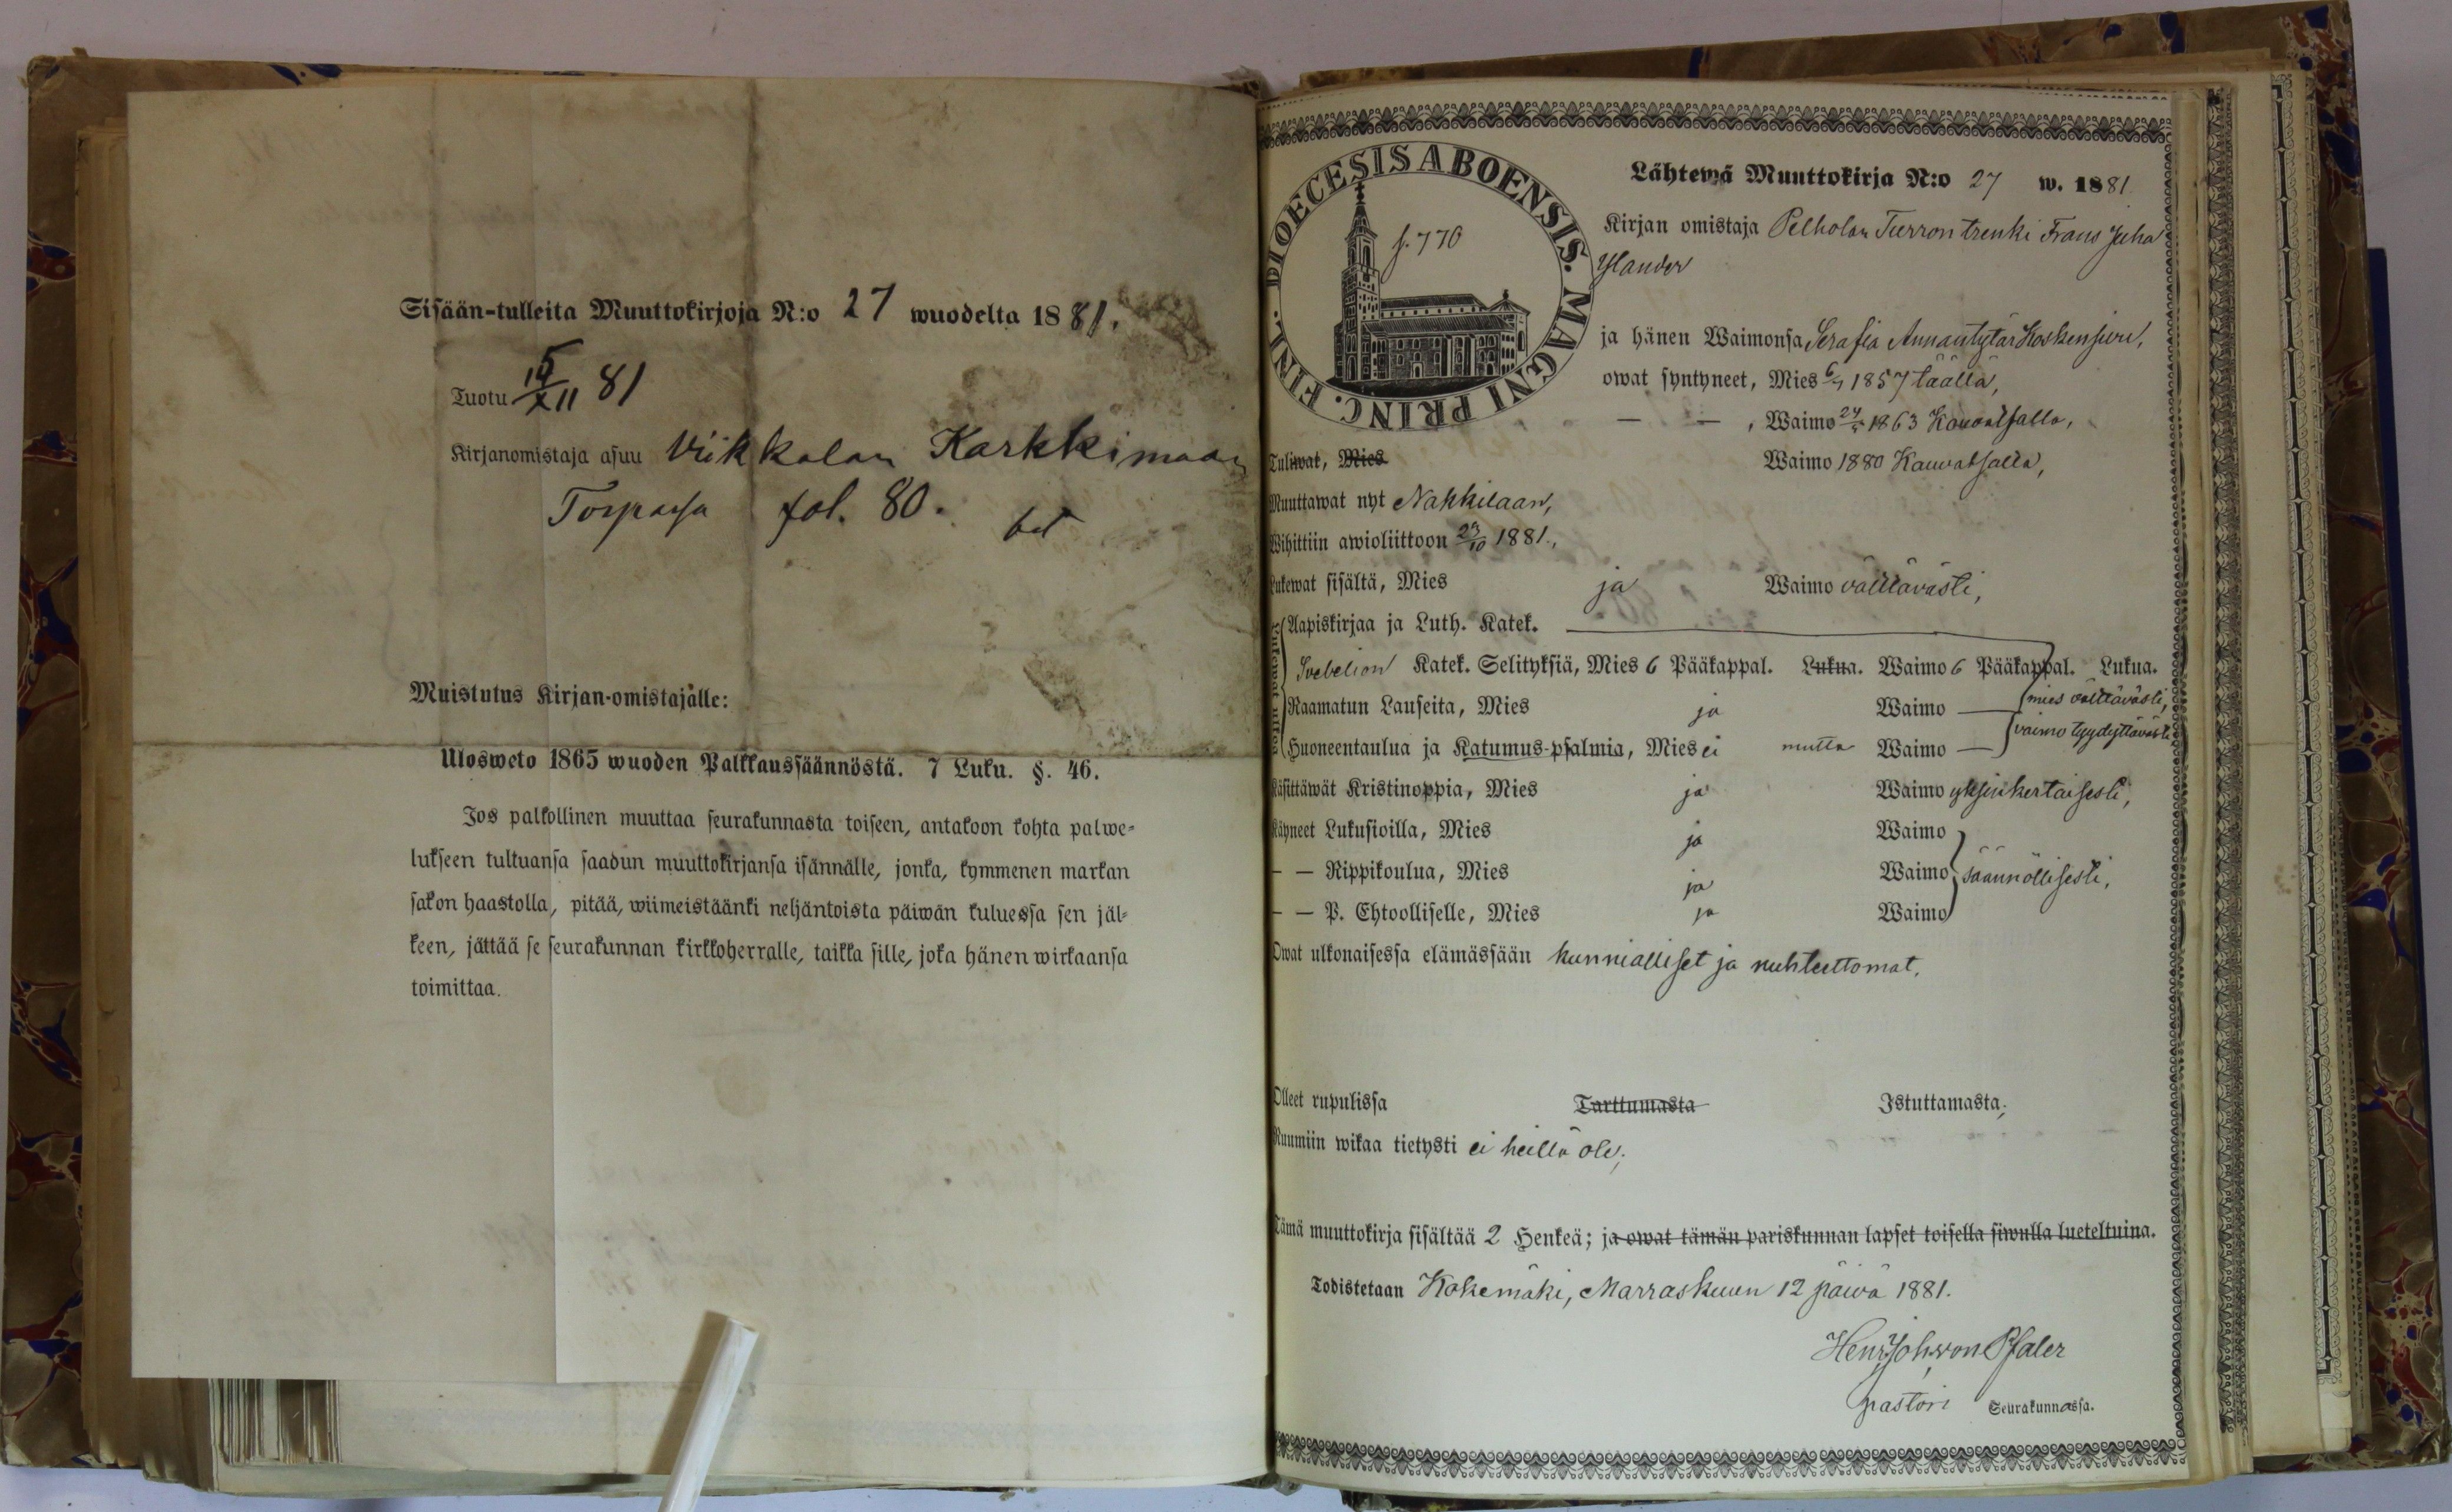 Sisään-tulleita Muuttokirjoja N:o 27 wuodelta 1881.
Tuotu 15/XII 81
Kirjanomistaja asuu Viikkalan Karkkimaan
Torpassa fol. 80.
Muistutus Kirjan-omistajalle:
Ulosweto 1865 wuoden Palkkaussäännöstä. 7 Luku. §. 46.
Jos palkollinen muuttaa seurakunnasta toiseen, antakoon kohta palwe=
lukseen tultuansa saadun muuttokirjansa isännälle, jonka, kymmenen markan
sakon haastolla, pitää, wiimeistäänki neljäntoista päiwän kuluessa sen jäl=
keen, jättää se seurakunnan kirkkoherralle, taikka sille, joka hänen wirkaansa
toimittaa.
DIOECESIS ABOENSIS. MAGNI PRINC. FINL.
f. 770
Lähtewä Muuttokirja N:o 27 w. 1881
Kirjan omistaja Pelholan Turron trenki Frans Juha
Ylander
ja hänen Waimonsa Serafia Annantytär Koskensivu,
owat syntyneet, Mies 6/7 1857 täällä,
— — , Waimo 1863 Kauvatsalla,
Tuliwat, Mies Waimo 1880 Kauvatsalla,
Muuttawat nyt Nakkilaan,
Wihittiin awioliittoon 23/10 1881.,
Lukewat sisältä, Mies ja Waimo välttävästi,
Lukewat ulkoa
Aapiskirjaa ja Luth. Katek.
Svebelion Katek. Selityksiä, Mies 6 Pääkappal. Lukua. Waimo 6 Pääkappal. Lukua.
Raamatun Lauseita, Mies ja Waimo — mies välttävästi,
Huoneentaulua ja Katumus-psalmia, Mies ei mutta Waimo — vaimo tyydyttävästi
Käsittäwät Kristinoppia, Mies ja Waimo yksinkertaisesti,
Käyneet Lukusioilla, Mies ja Waimo
— — Rippikoulua, Mies ja Waimo säännöllisesti,
— — P. Ehtoolliselle, Mies ja Waimo
Owat ulkonaisessa elämässään kunnialliset ja nuhteettomat.
Olleet rupulissa Tarttumasta Istuttamasta;
Ruumiin wikaa tietysti ei heillä ole;
Tämä muuttokirja sisältää 2 Henkeä; ja owat tämän pariskunnan lapset toisella siwulla lueteltuina.
Todistetaan Kokemäki, Marraskuun 12 päivä 1881.
Henr. Joh. von Pfaler
pastori Seurakunnassa.